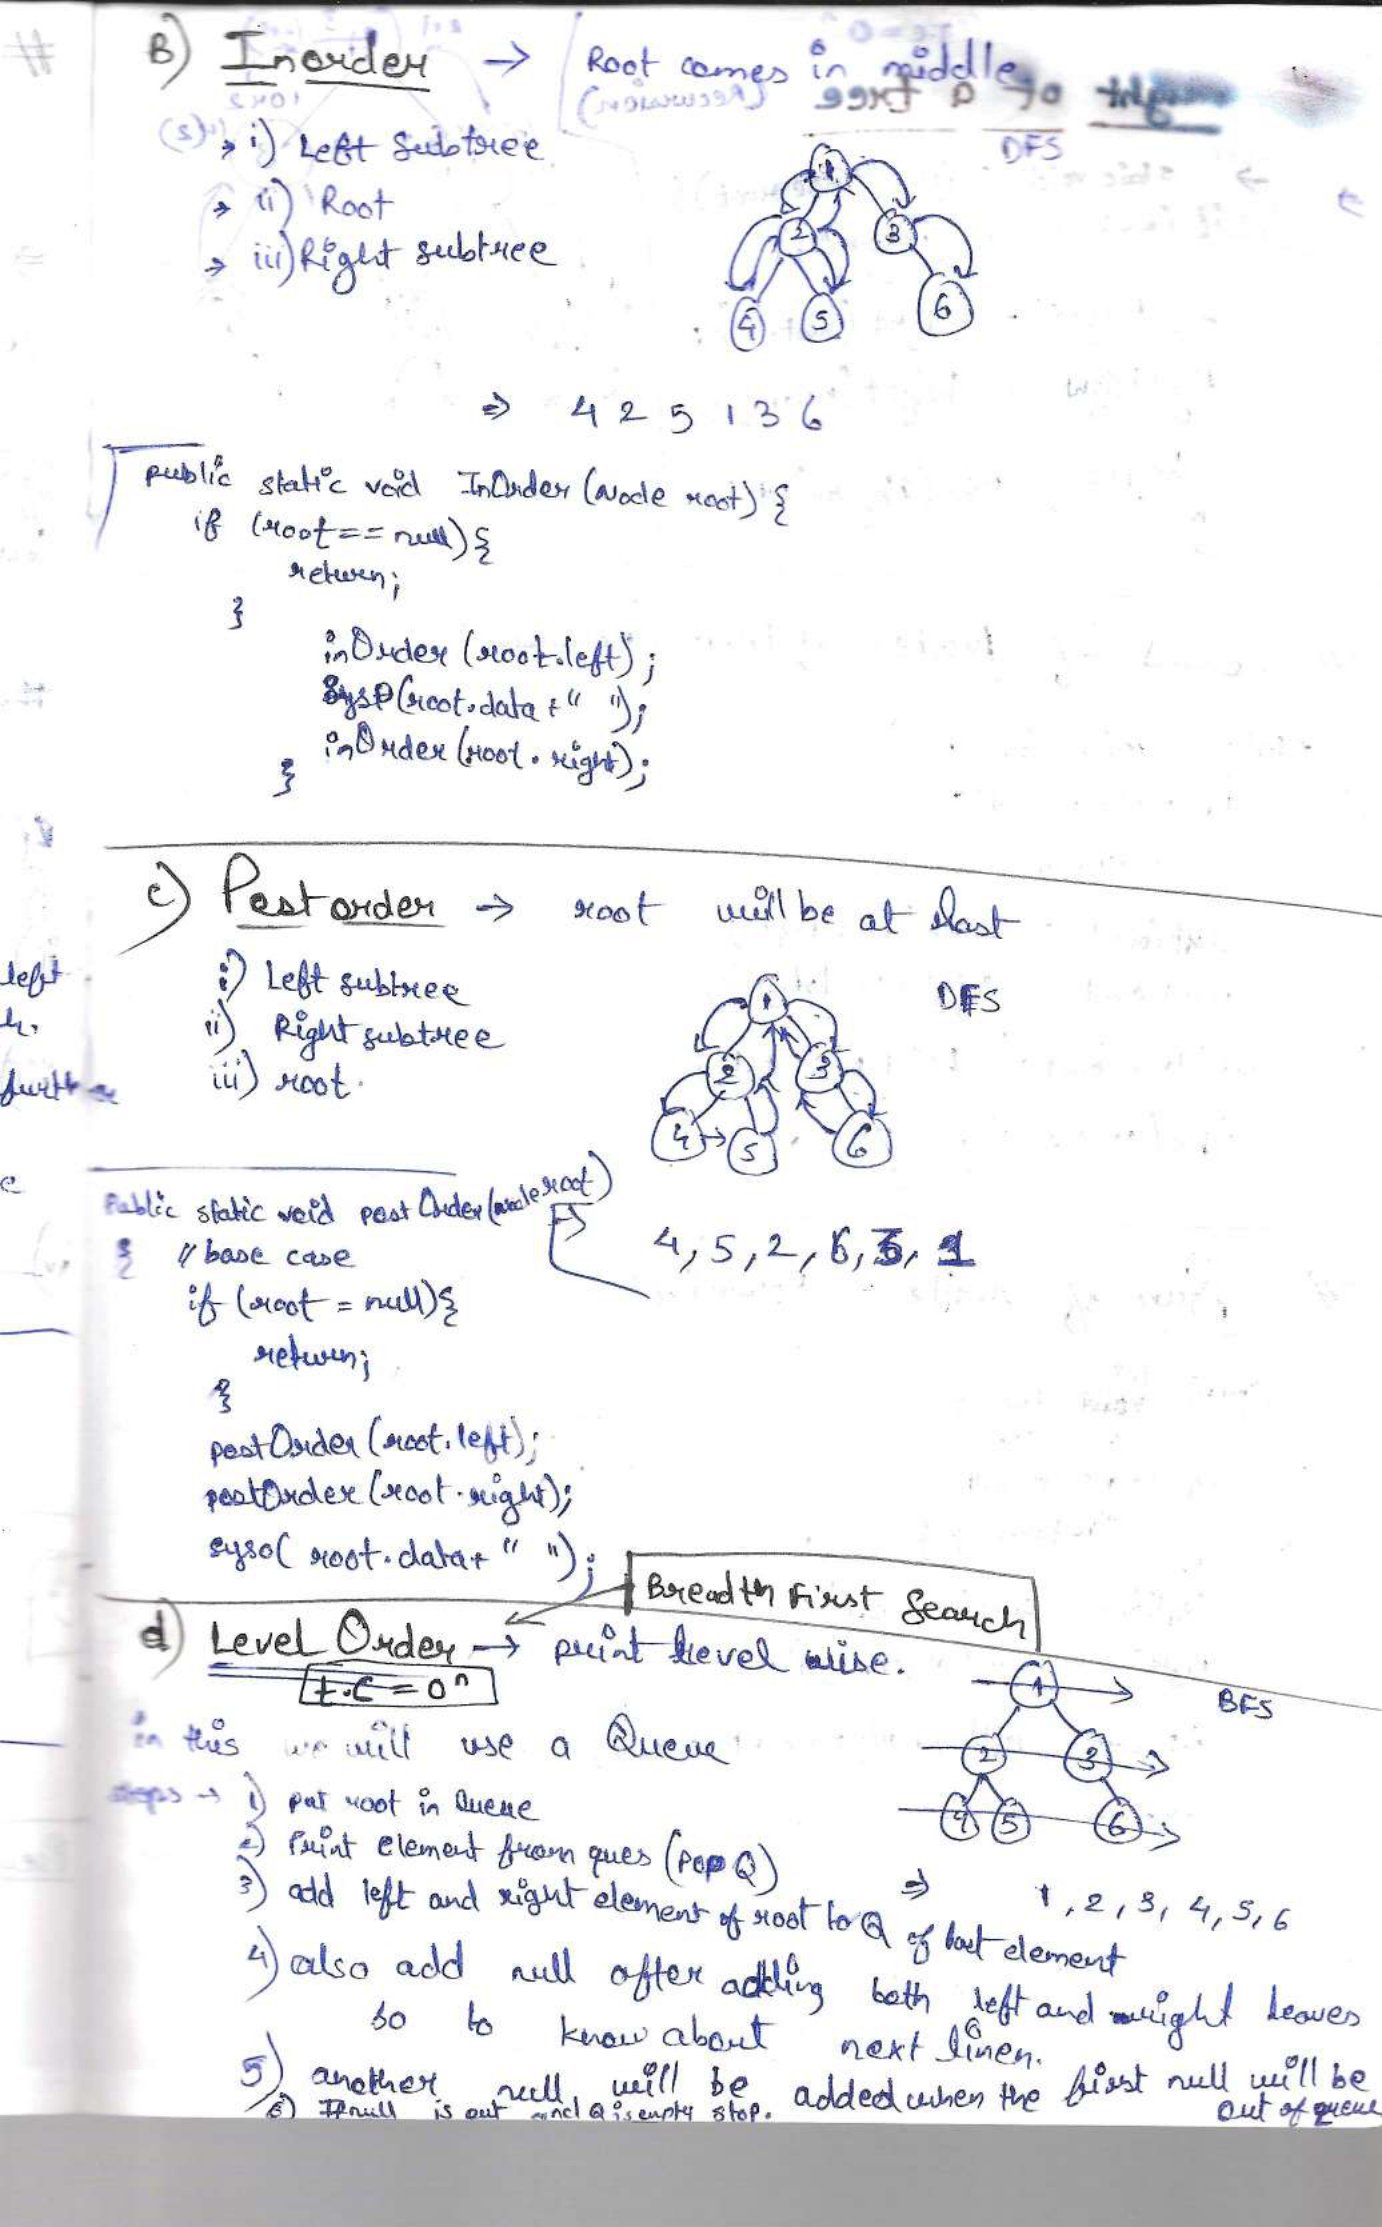 B) Inorder → Root comes in middle
DFS
→ i) Left Subtree
→ ii) Root
→ iii) Right subtree
1
2 3
4 5 6
⇒ 4 2 5 1 3 6
public static void InOrder (Node root) {
if (root == null) {
return;
}
inOrder (root.left);
SysO (root.data + " ");
inOrder (root.right);
}
c) Postorder → root will be at last
i) Left subtree
ii) Right subtree
iii) root.
DFS
1
2 3
4 → 5 6
Public static void postOrder (node root)
{ // base case
if (root = null) {
return;
}
postOrder (root.left);
postOrder (root.right);
syso( root.data + " ");
⇒ 4, 5, 2, 6, 3, 1
Breadth First Search
d) Level Order → print level wise.
t.C = 0ⁿ
BFS
1
2 3
4 5 6
in this we will use a Queue
steps → 1) put root in Queue
2) Print element from ques (pop Q)
3) add left and right element of root to Q of last element
⇒ 1, 2, 3, 4, 5, 6
4) also add null after adding both left and right leaves
so to know about next linen.
5) another null will be added when the first null will be
out of queue
6) If null is out and Q is empty stop.
left